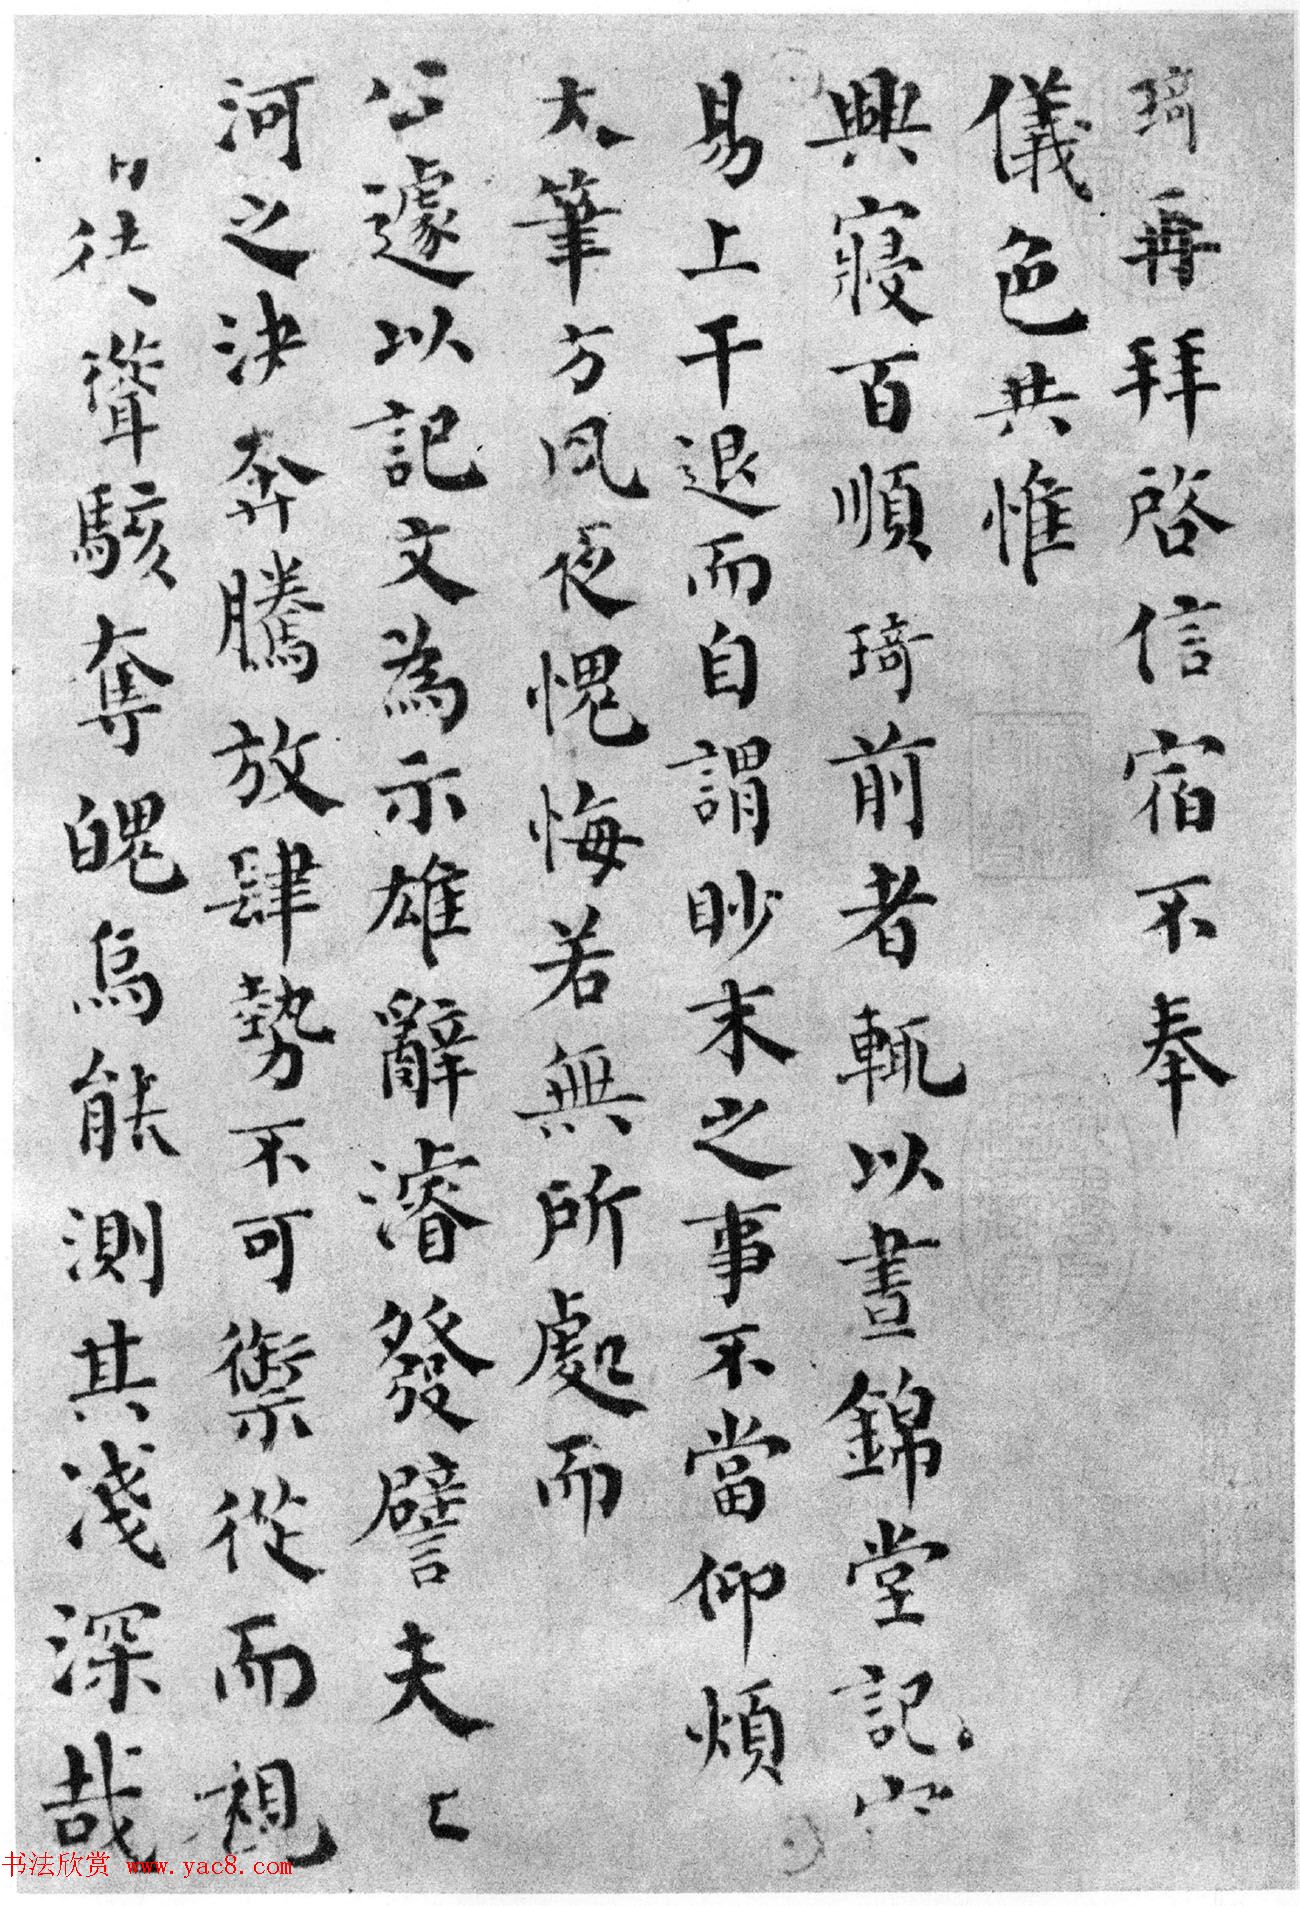 琦再拜啓信宿不奉
儀色共惟
興寢百順琦前者輒以晝錦堂記
易上干退而自謂眇末之事不當仰煩
大筆方夙夜愧悔若無所處而
公遽以記文為示雄辭濬發譬夫
河之決奔騰放肆勢不可禦從而視
徃聳駭奪魄烏能測其淺深哉
书法欣赏 www.yac8.com